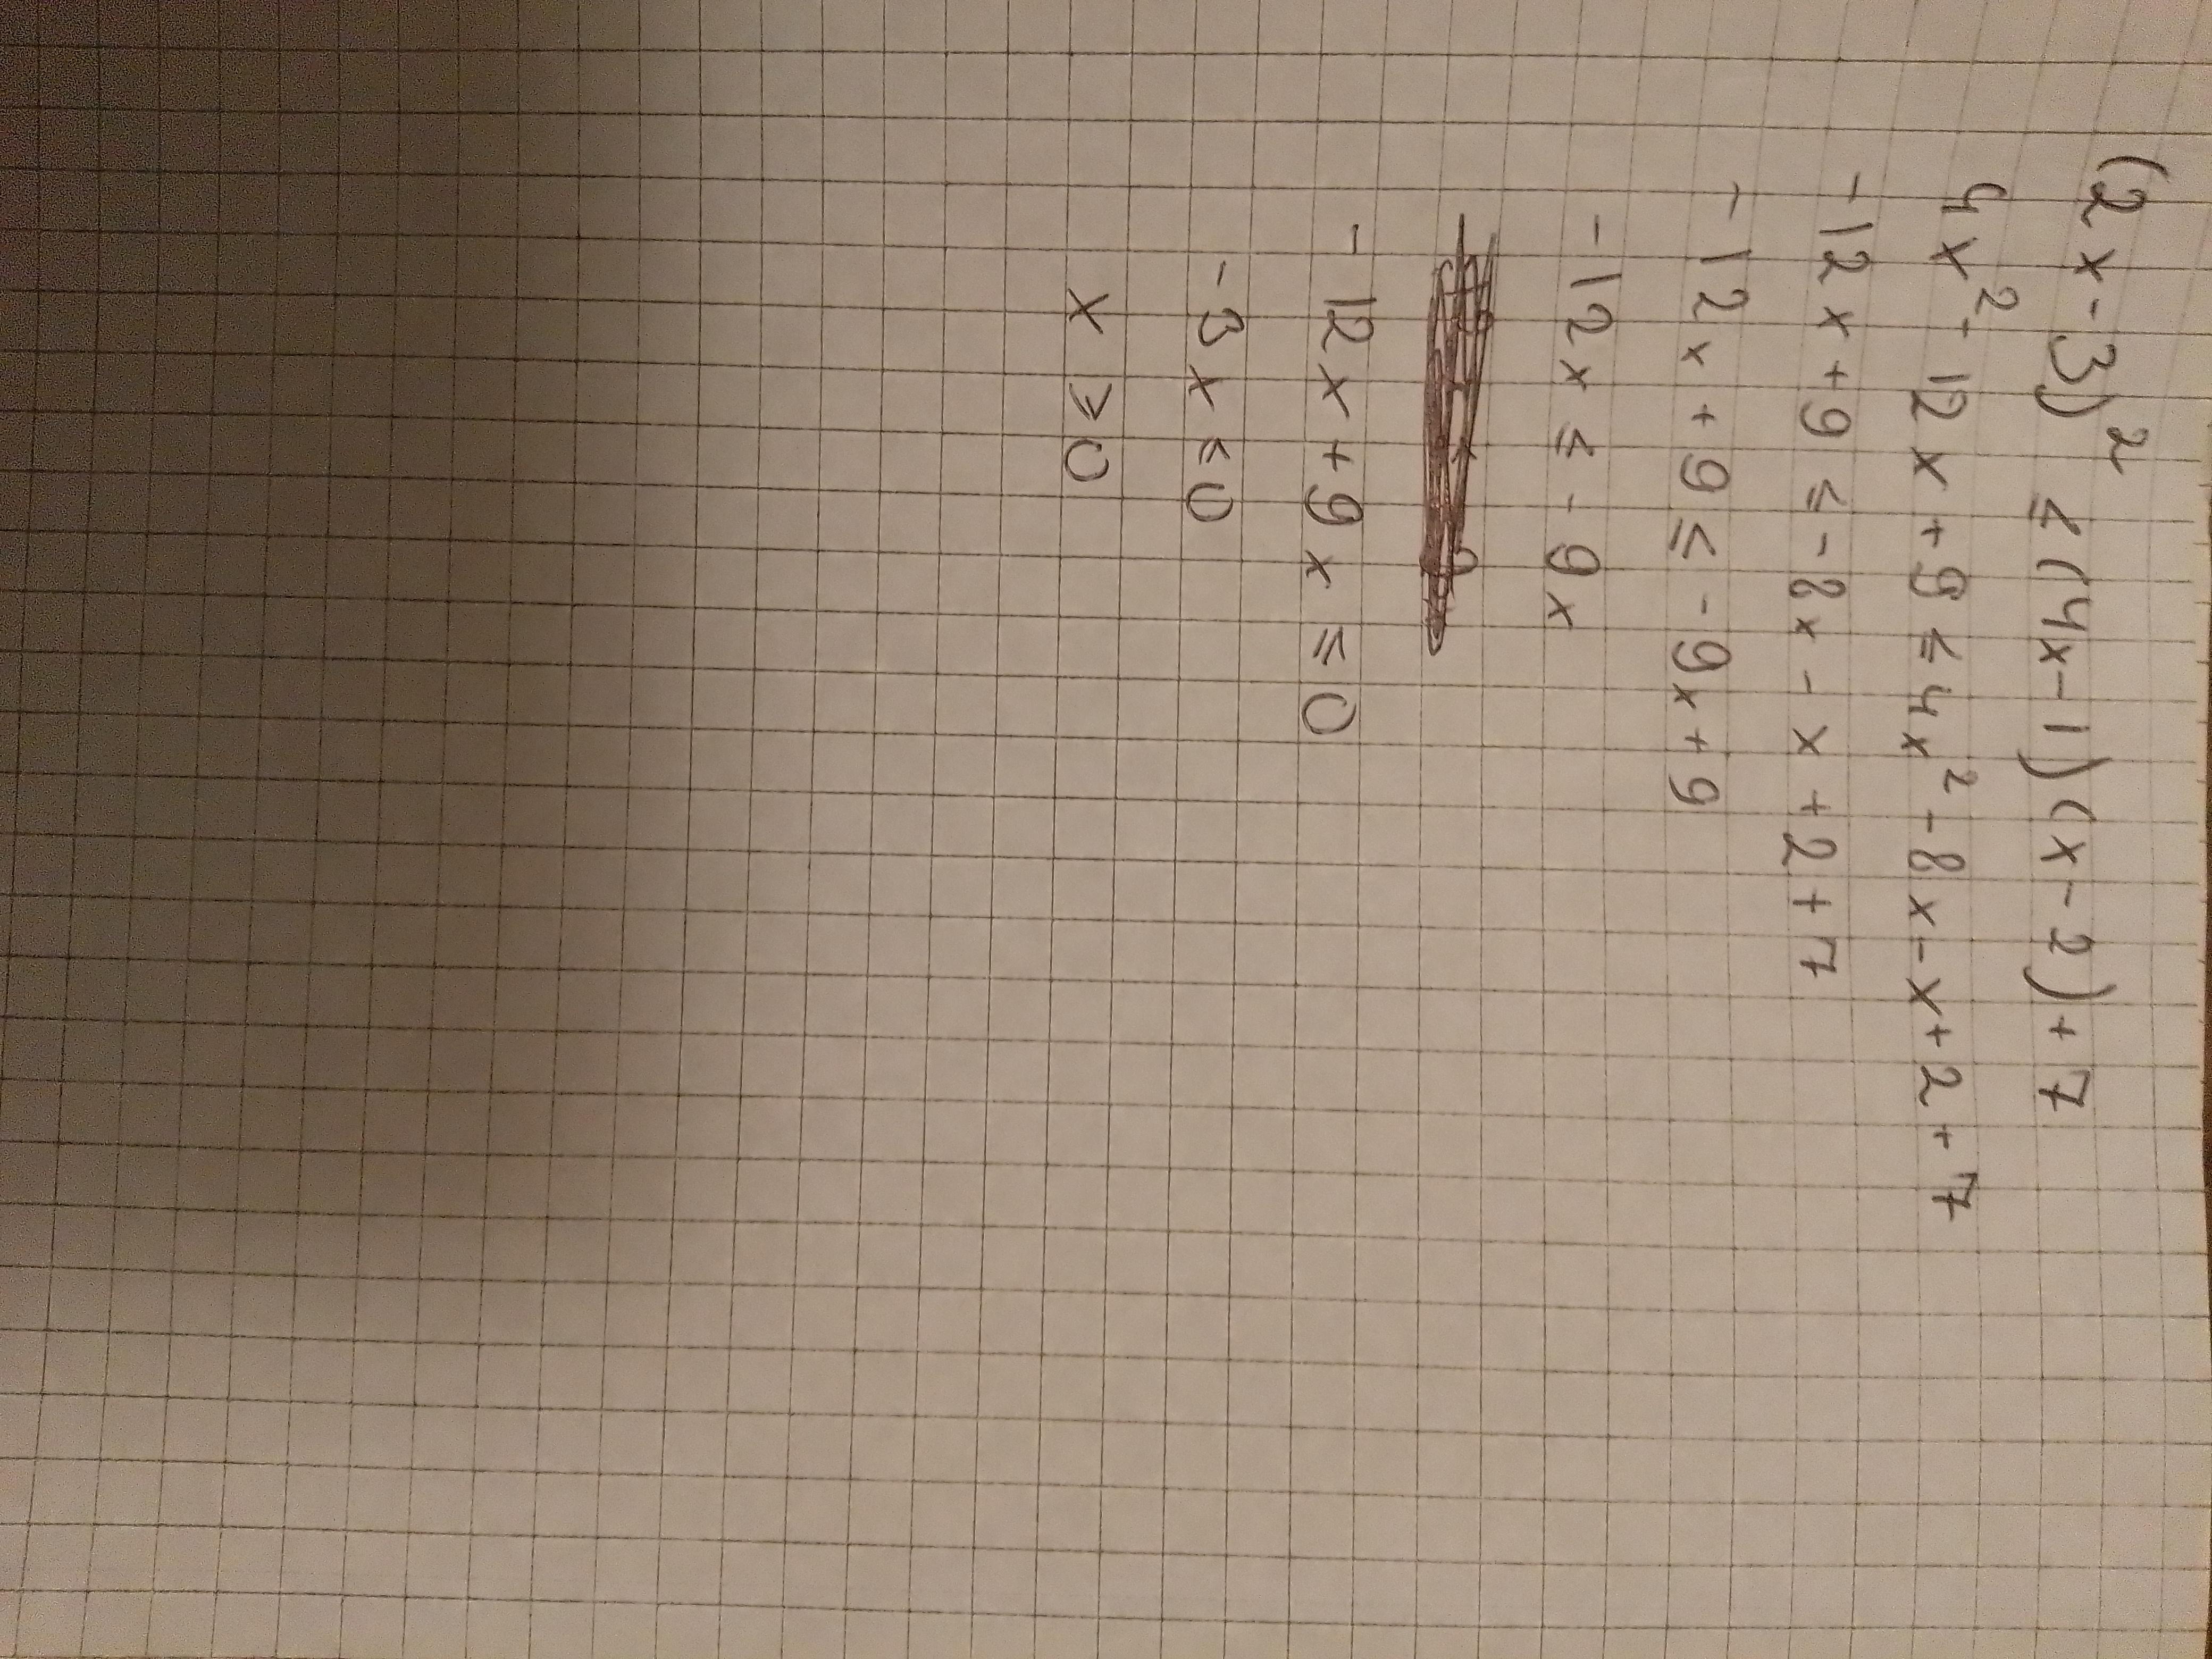 (2x-3)² ≤ (4x-1)(x-2)+7
4x²-12x+9 ≤ 4x²-8x-x+2+7
-12x+9 ≤ -8x-x+2+7
-12x+9 ≤ -9x+9
-12x ≤ -9x
-12x+9x ≤ 0
-3x ≤ 0
x ≥ 0